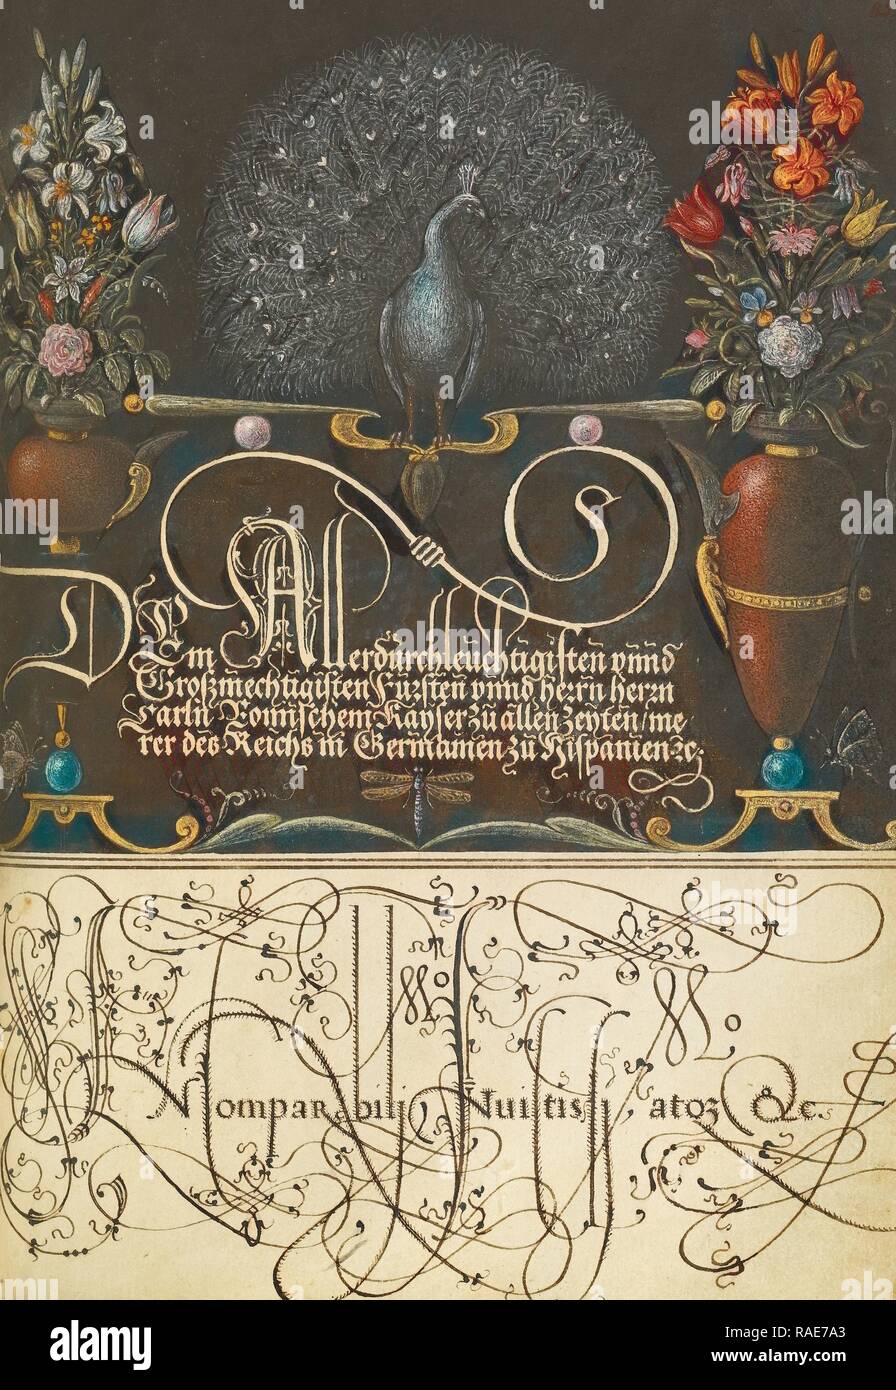 Dem Allerdurchleuchtigisten vnnd
Großmechtigisten Fürsten vnnd herrn herrn
Carln Romischem Kayser zu allen zeyten / me⸗
rer des Reichs in Germanien zu Hispanien ꝛc;
Mo Mo
Nompar abili Nuiltissi atoz &c.
alamy
Image ID: RAE7A3
www.alamy.com